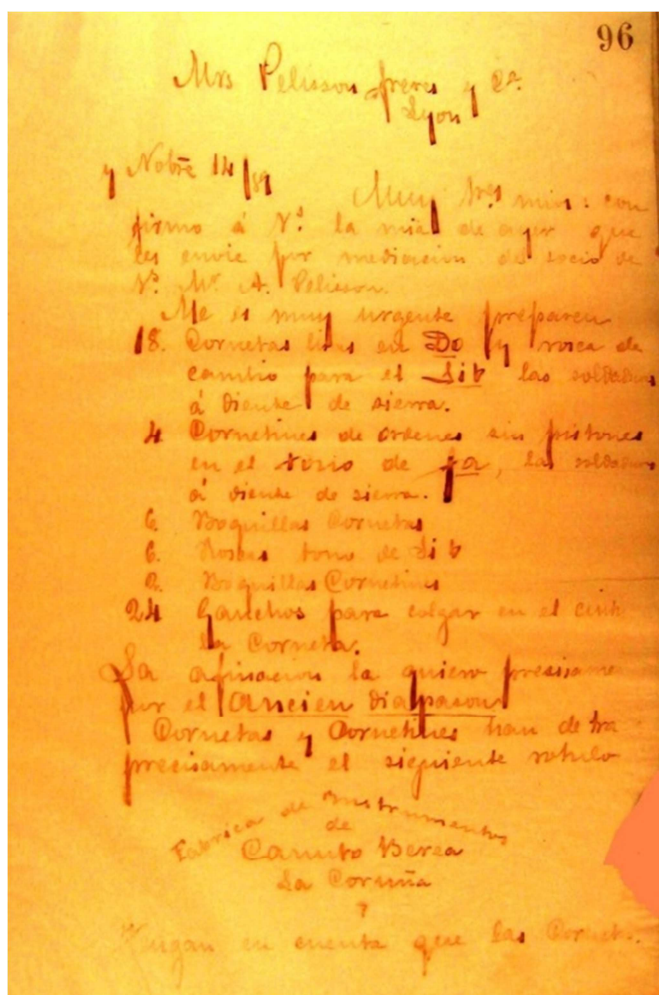 96
Mrs Pelisson freres y Ca.
Lyon
y Nobre 14/89
Muy Sres mios: con
firmo á Vs la mia de ayer que
les envie por mediacion de socio de
Vs Mr. A. Pelisson.
Me es muy urgente preparen
18. Cornetas lisas en Do y rosca de
cambio para el Sib las soldaduras
á diente de sierra.
4 Cornetines de ordenes sin pistones
en el tono de fa, las soldaduras
á diente de sierra.
6. Boquillas Cornetas
6. Roscas tono de Si b
2. Boquillas Cornetines
24 Ganchos para colgar en el cint
la Corneta.
La afinacion la quiero precisame
por el Ancien diapason
Cornetas y Cornetines han de tra
precisamente el siguiente rotulo
Fabrica de Instrumentos
de
Canuto Berea
La Coruña
?
Tengan en cuenta que las Cornet.